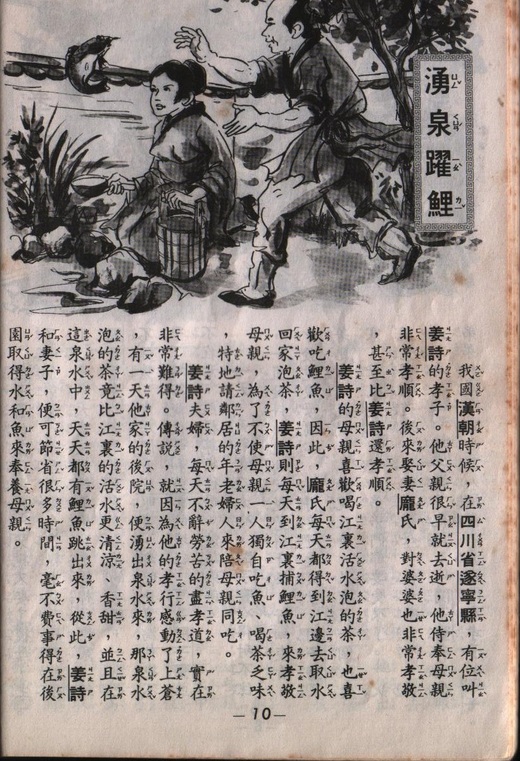 湧泉躍鯉
我國漢朝時候，在四川省遂寧縣，有位叫
姜詩的孝子。他父親很早就去逝，他侍奉母親
非常孝順。後來娶妻龐氏，對婆婆也非常孝敬
，甚至比姜詩還孝順。
姜詩的母親喜歡喝江裏活水泡的茶，也喜
歡吃鯉魚，因此，龐氏每天都得到江邊去取水
回家泡茶，姜詩則每天到江裏捕鯉魚，來孝敬
母親，為了不使母親一人獨自吃魚、喝茶乏味
，特地請鄰居的年老婦人來陪母親同吃。
姜詩夫婦，每天不辭勞苦的盡孝道，實在
非常難得。傳說，就因為他的孝行感動了上蒼
，有一天他家的後院，便湧出泉水來，那泉水
泡的茶竟比江裏的活水更清涼、香甜，並且在
這泉水中，天天都有鯉魚跳出來，從此，姜詩
和妻子，便可節省很多時間，毫不費事得在後
園取得水和魚來奉養母親。
—10—